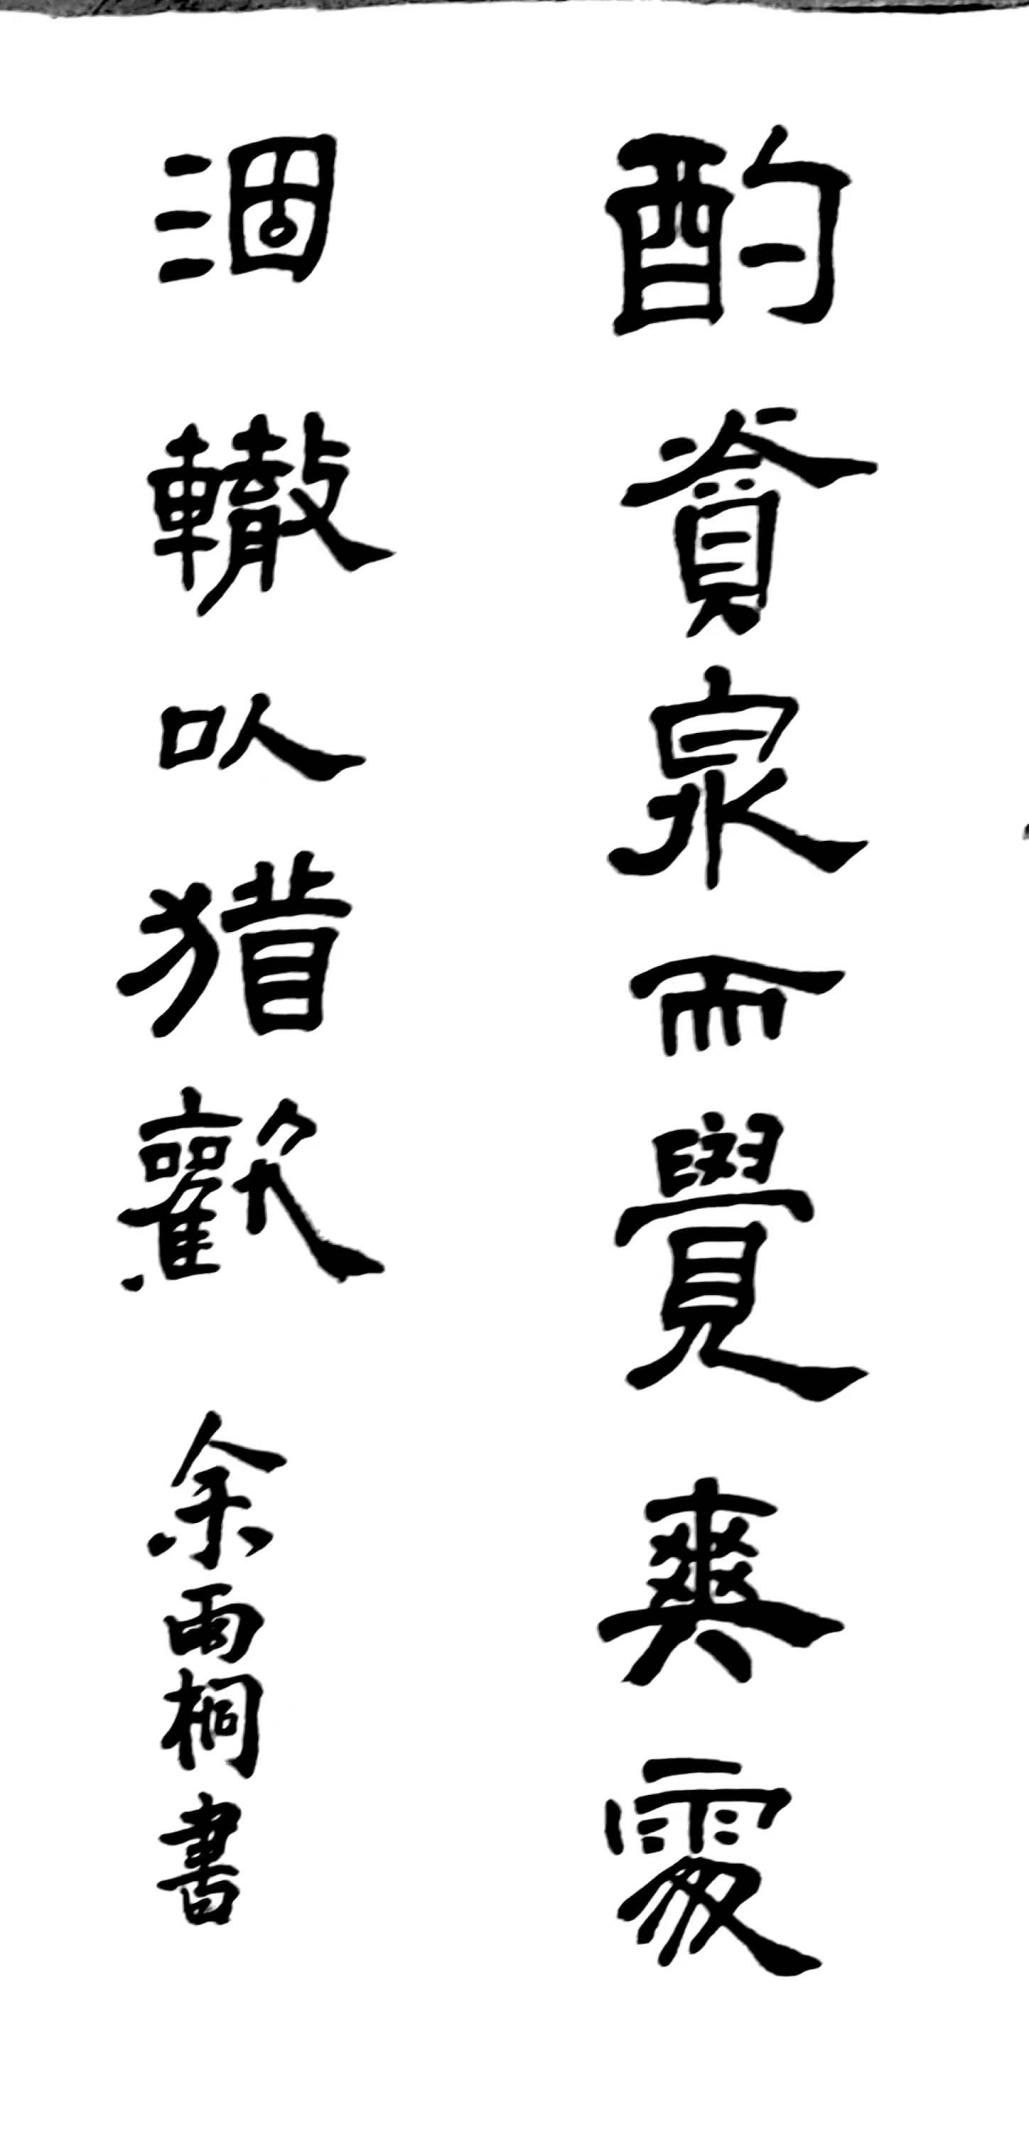 酌貪泉而覺爽處
涸轍以猶歡 余雨桐書